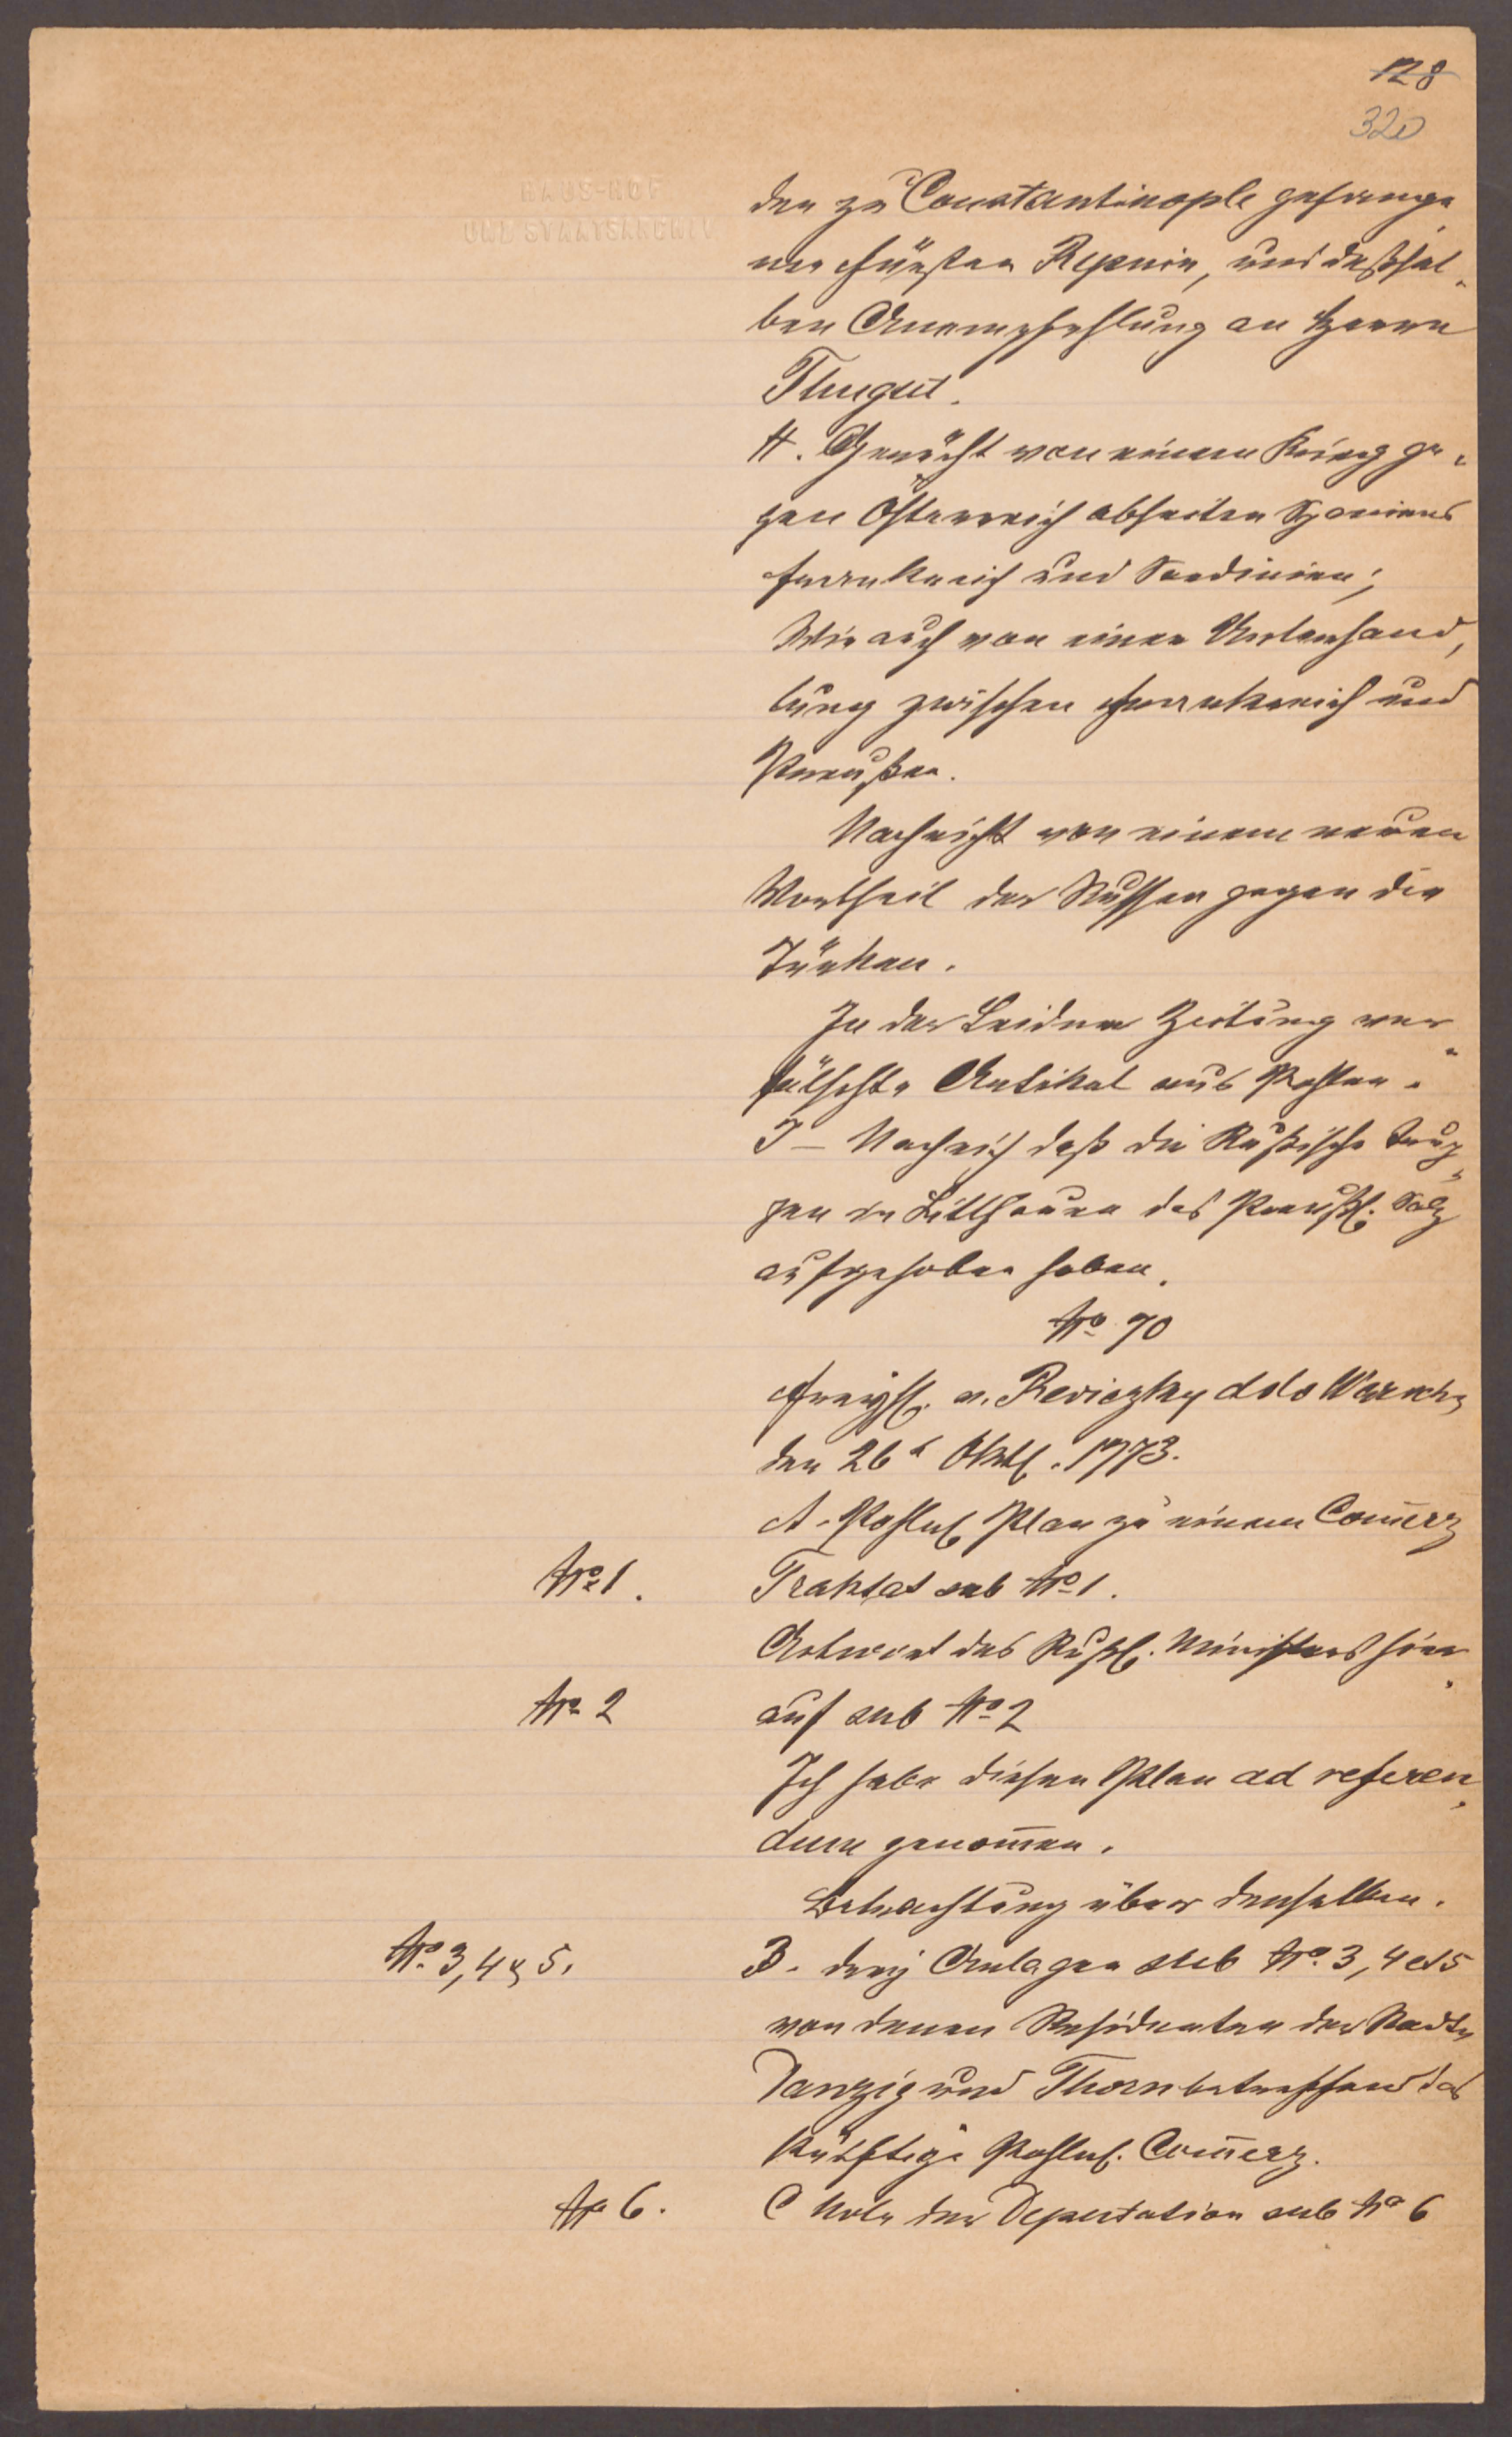 128
320
HAUS-HOF
UND STAATSARCHIV
den zu Constantinople gefange„
nen Fürsten Repnin, und deßhal„
ben Anempfehlung an Herrn
Thugut.
H. Gerücht von einem Krieg ge„
gen Österreich abseiten Spaniens
Frankreich und Sardinien;
Wie auch von einer Unterhand„
lung zwischen Frankreich und
Preußen.
Nachricht von einem neuen
Vortheil der Russen gegen die
Türken.
In der Leidner Zeitung ver„
fälschte Artikel aus Pohlen.
I – Nachrich daß die Rußische Trup„
pen in Litthauen das Preußl. Salz
aufgehoben haben.
No 70
Freyh. v. Reviczky ddo Warschau
den 26t Oktb. 1773.
A. Pohln. Plan zu einem Com̄erz
No 1.
Traktat sub No 1.
Antwort des Rußl. Ministers hier„
No 2
auf sub No 2
Ich habe diesen Plan ad referen„
dum genom̄en.
Betrachtung über denselben.
No 3, 4 & 5.
B. drey Anlagen sub No 3, 4 et 5
von denen Residenten der Städte
Danzig und Thorn betreffend das
künftige Pohln. Com̄erz.
No 6.
C Note der Deputation sub No 6